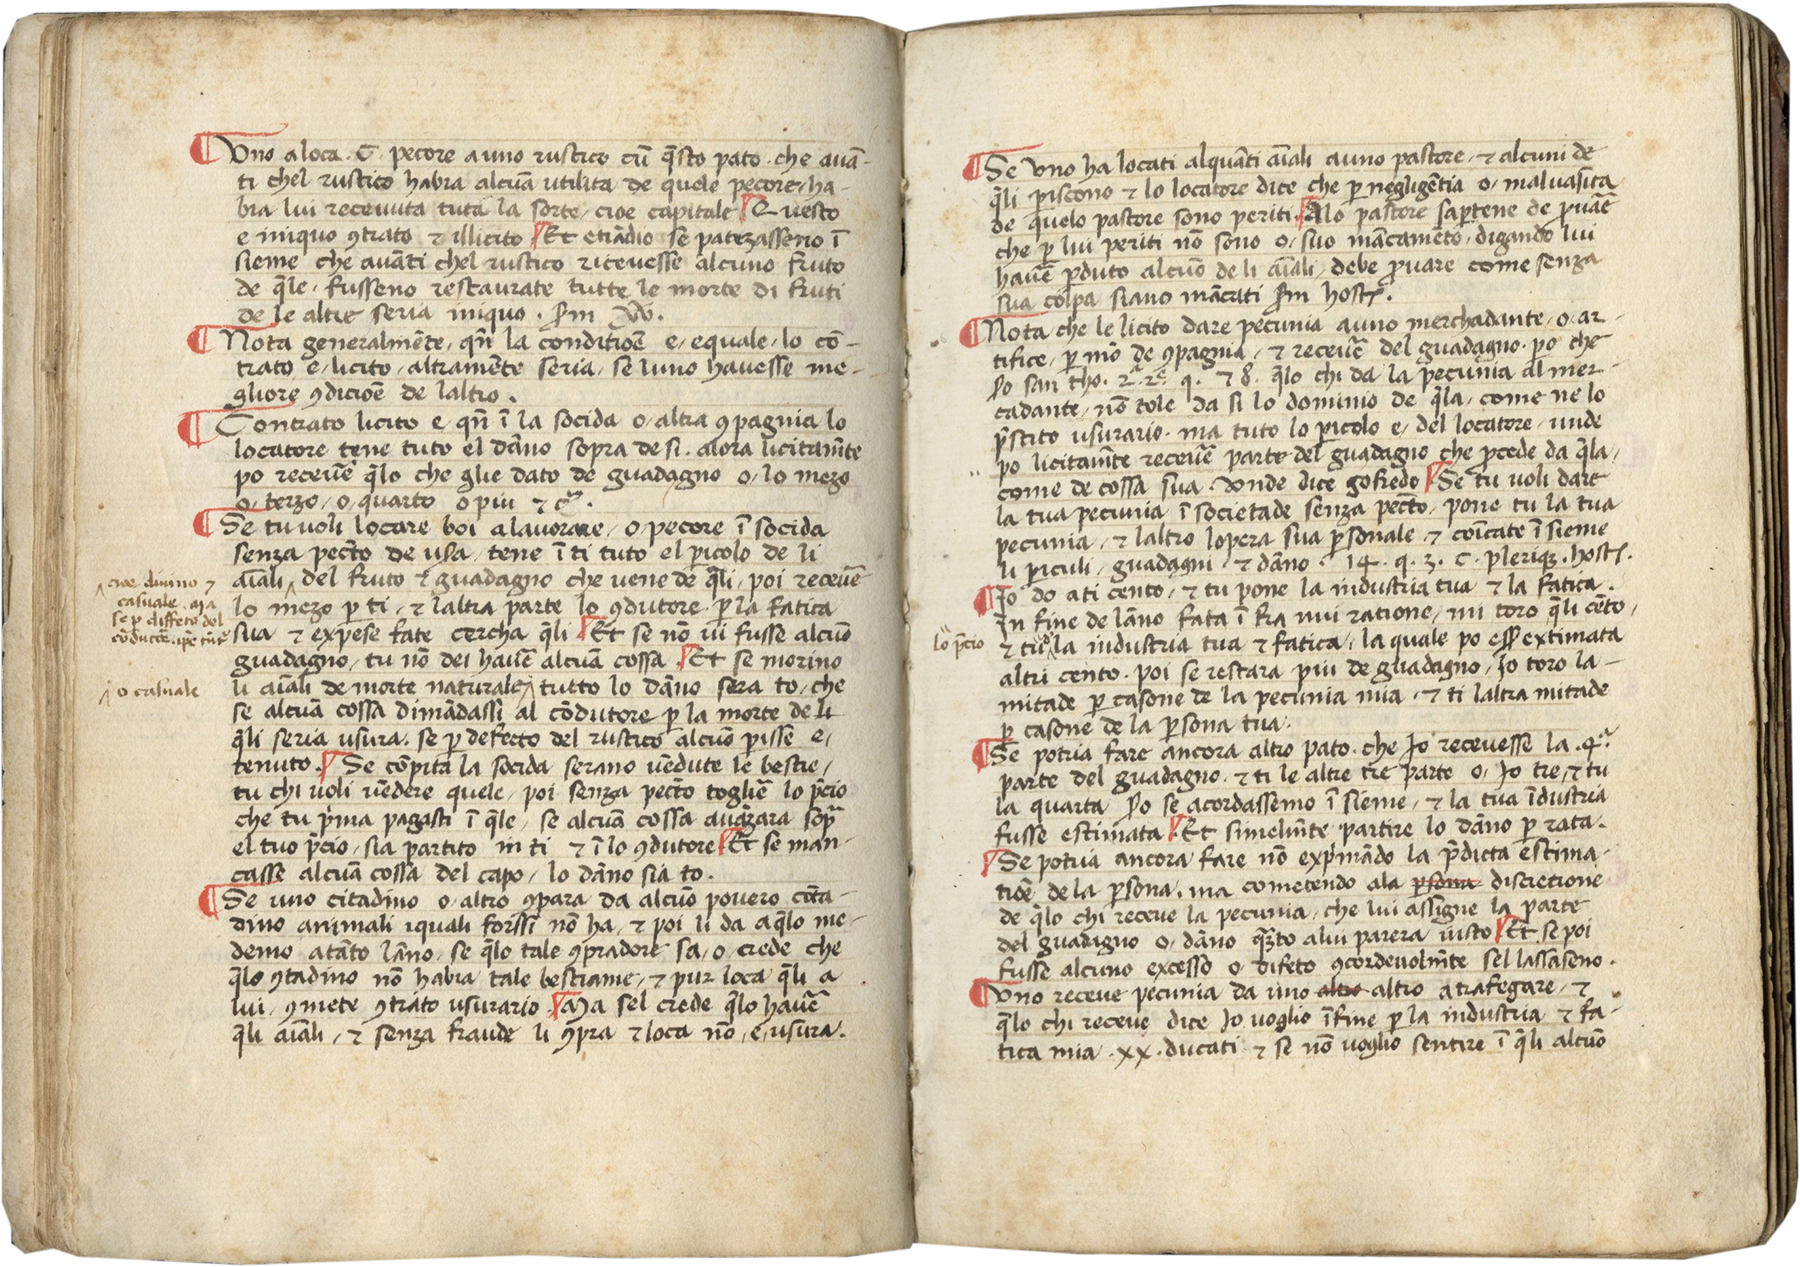 Uno aloca .C. pecore auno rustico cū q̄sto pato . che auā-
ti chel rustico habra alcuā utilita de quele pecore, ha-
bra lui receuuta tuta la sorte, cioe capitale Questo
e iniquo ꝯtrato ⁊ illicito Et etiādio se patezasseno ī
sieme che auāti chel rustico riceuesse alcuno fruto
de q̄le, fusseno restaurate tutte le morte di fruti
de le altre seria iniquo . ẜm W.
Nota generalmēte, qn̄ la conditioē e, equale, lo cō-
trato e, licito, altramēte seria, se luno hauesse me-
gliore ꝯdicioē de laltro .
Contrato licito e qn̄ ī la socida o, altra ꝯpagnia lo
locatore tene tuto el dāno sopra de si . alora licitamēte
po receuē q̄lo che glie dato de guadagno o, lo mezo
o, terzo, o, quarto o piu ⁊ c̄.
Se tu uoli locare boi alauorare, o, pecore ī socida
senza pecc̄to de usa, tene ī ti tuto el ꝑicolo de li
aīali ^ del fruto ⁊ guadagno che uene de q̄li, poi receuē
lo mezo ꝑ ti, ⁊ laltra parte lo ꝯdutore . ꝑ la fatica
sua ⁊ expese fate cercha q̄li Et se nō iui fusse alcuō
guadagno, tu nō dei hauē alcuā cossa . Et se morino
li aīali de morte naturale ^ tutto lo dāno sera to, che
se alcuā cossa dimādassi al cōdutore ꝑ la morte de li
q̄li seria usura . se ꝑ defecto del rustico alcuō ꝑissē e,
tenuto . Se cōpita la socida serano uēdute le bestie,
tu chi uoli uēdere quele, poi senza pecc̄to togliē lo p̄cio
che tu p̄ma pagasti ī q̄le, se alcuā cossa auāzara sop̄
el tuo p̄cio, sia partito in ti ⁊ ī lo ꝯdutore Et se man-
casse alcuā cossa del capo, lo dāno sia to .
Se uno citadino o, altro ꝯpara da alcuō pouero cōta-
dino animali iquali forssi nō ha, ⁊ poi li da aq̄lo me-
demo atāto lāno, se q̄lo tale ꝯpradore sa, o crede che
q̄lo ꝯtadino nō habra tale bestiame, ⁊ pur loca q̄li a
lui, ꝯmete ꝯtrato usurario . Ma sel crede q̄lo hauē
q̄li aīali, ⁊ senza fraude li ꝯpra ⁊ loca nō, e, usura .
^ cioe diuino ⁊
casuale . ma
se ꝑ diffeto del
^ o casuale
Se uno ha locati alquāti aīali auno pastore, ⁊ alcuni de
q̄li piscono ⁊ lo locatore dice che ꝑ negligētia o, maluasita
de quelo pastore sono periti . Alo pastore saꝑtene de ꝓuāē
che ꝑ lui periti nō sono o, suo mācamēto, digando lui
hauē ꝑduto alcuō de li aīali, debe ꝓuare come senza
sua colpa siano mācati ẜm host̄.
Nota, che le licito dare pecunia auno merchadante, o, ar-
tifice, ꝑ mō de ꝯpagnia, ⁊ receuē del guadagno . ꝑo che
ẜo san tho. 2ª. 2ᵉ. q. 78. q̄lo chi da la pecunia al mer-
cadante, nō tole da si lo dominio de q̄la, come ne lo
p̄stito usurario . ma tuto lo ꝑicolo e, del locatore, unde
po licitamēte receuē parte del guadagno che ꝓcede da q̄la,
come de cossa sua . Unde dice gofredo Se tu uoli dare
la tua pecunia ī societade senza pecc̄to, pone tu la tua
pecunia, ⁊ laltro lopera sua ꝑsonale ⁊ coīcate ī sieme
li ꝑiculi, guadagni, ⁊ dāno . 14. q. 3. c. plerique. host̄.
Io do a ti cento, ⁊ tu pone la industria tua ⁊ la fatica .
In fine de lāno fata ī fra nui ratione, mi toro q̄li cēto,
⁊ tu ^ la industria tua ⁊ fatica, la quale po ess̄ extimata
altri cento . poi se restara piu de guadagno, Io toro la-
mitade ꝑ casone de la pecunia mia, ⁊ ti laltra mitade
ꝑ casone de la ꝑsona tua .
lo p̄cio
Se potria fare ancora altro pato . che Io receuesse la .4ª
parte del guadagno . ⁊ ti le altre tre parte o, Io tre, ⁊ tu
la quarta ẜo se acordassemo ī sieme, ⁊ la tua īdustria
fusse estimata Et simelmēte partire lo dāno ꝑ rata .
Se potria ancora fare nō exp̄mādo la p̄dicta estima-
tiōe de la ꝑsona . ma cometendo ala ꝑsona discretione
de q̄lo chi receue la pecunia, che lui assigne la parte
del guadagno o, dāno quāto alui parera iusto Et se poi
fusse alcuno excesso o difeto ꝯcordeuolmēte sel lassaseno .
Uno receue pecunia da uno altro altro a trafegare, ⁊
q̄lo chi receue dice Io uoglio ī fine ꝑ la industria ⁊ fa-
tica mia . xx. ducati ⁊ se nō uoglio sentire ī q̄li alcuō